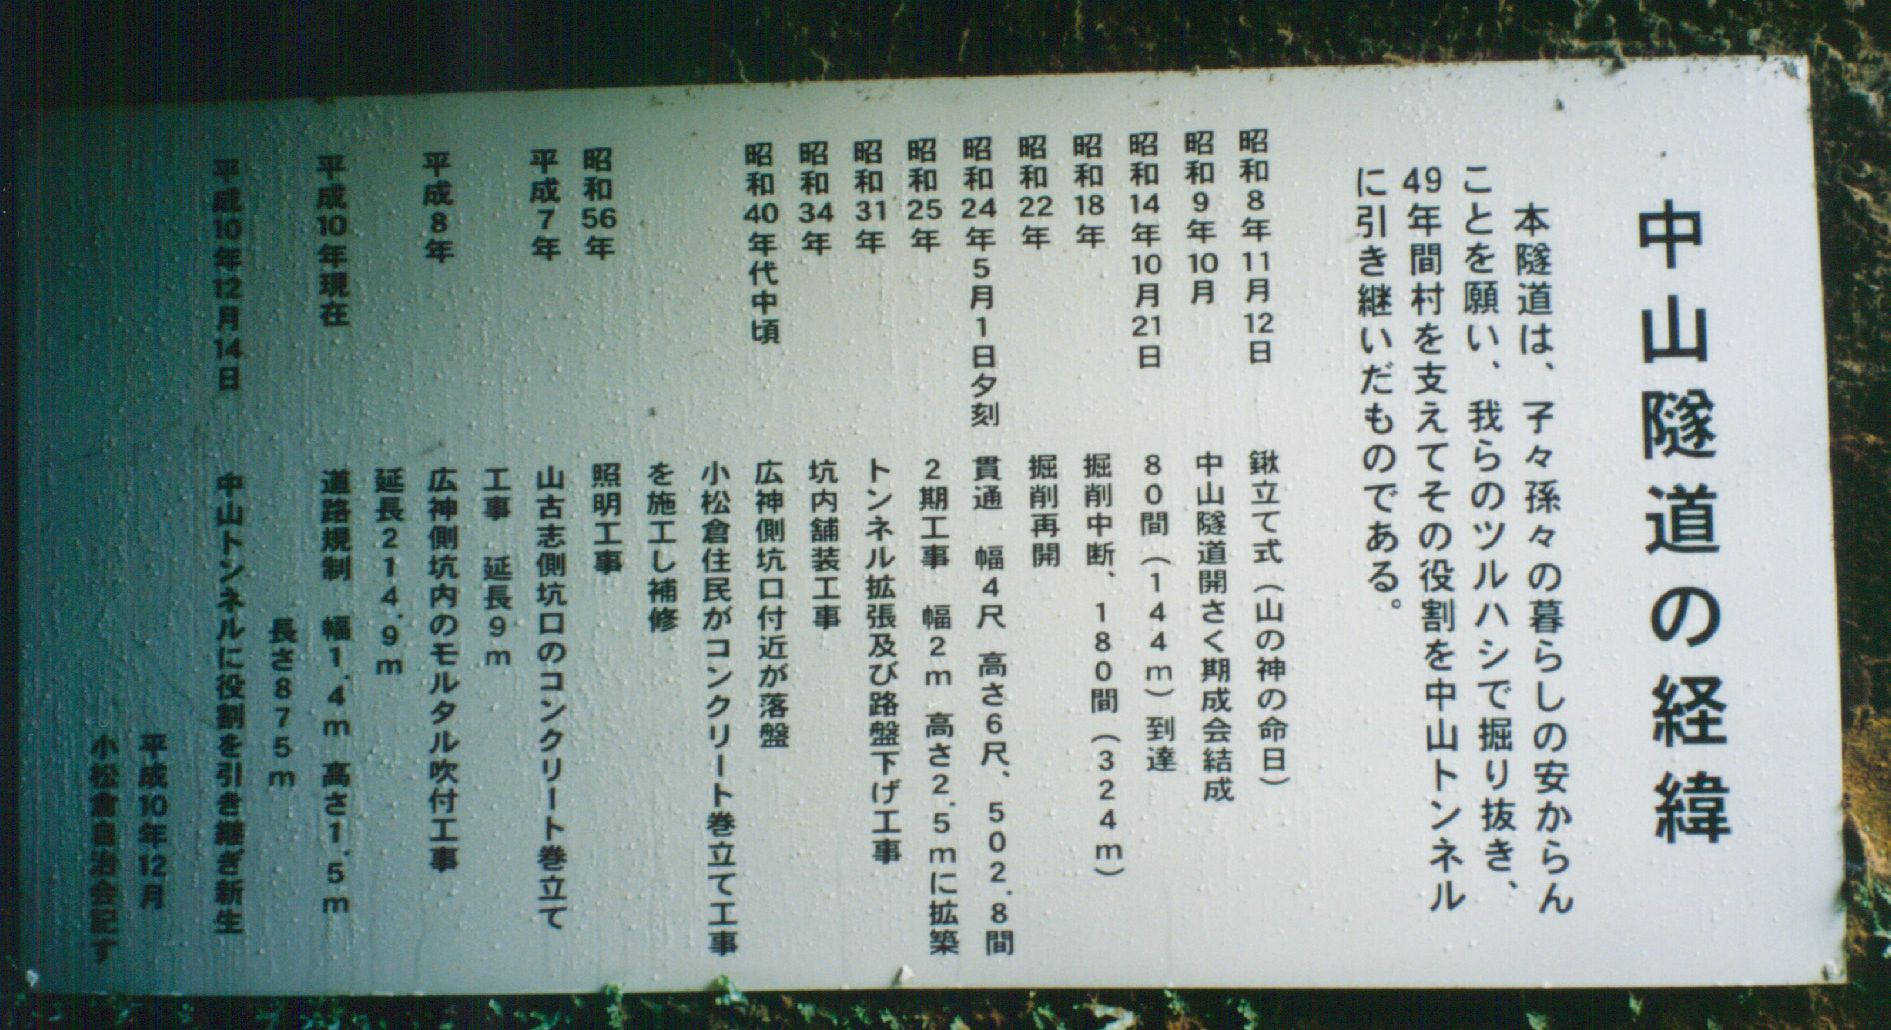 中山隧道の経緯
本隧道は、子々孫々の暮らしの安からん
ことを願い、我らのツルハシで掘り抜き、
49年間村を支えてその役割を中山トンネル
に引き継いだものである。
昭和8年11月12日 鍬立て式（山の神の命日）
昭和9年10月 中山隧道開さく期成会結成
昭和14年10月21日 80間（144m）到達
昭和18年 掘削中断、180間（324m）
昭和22年 掘削再開
昭和24年5月1日夕刻 貫通 幅4尺 高さ6尺、502.8間
昭和25年 2期工事 幅2m 高さ2.5mに拡築
昭和31年 トンネル拡張及び路盤下げ工事
昭和34年 坑内舗装工事
昭和40年代中頃 広神側坑口付近が落盤
小松倉住民がコンクリート巻立て工事
を施工し補修
昭和56年 照明工事
平成7年 山古志側坑口のコンクリート巻立て
工事 延長9m
平成8年 広神側坑内のモルタル吹付工事
延長214.9m
平成10年現在 道路規制 幅1.4m 高さ1.5m
長さ875m
平成10年12月14日 中山トンネルに役割を引き継ぎ新生
平成10年12月
小松倉自治会記す